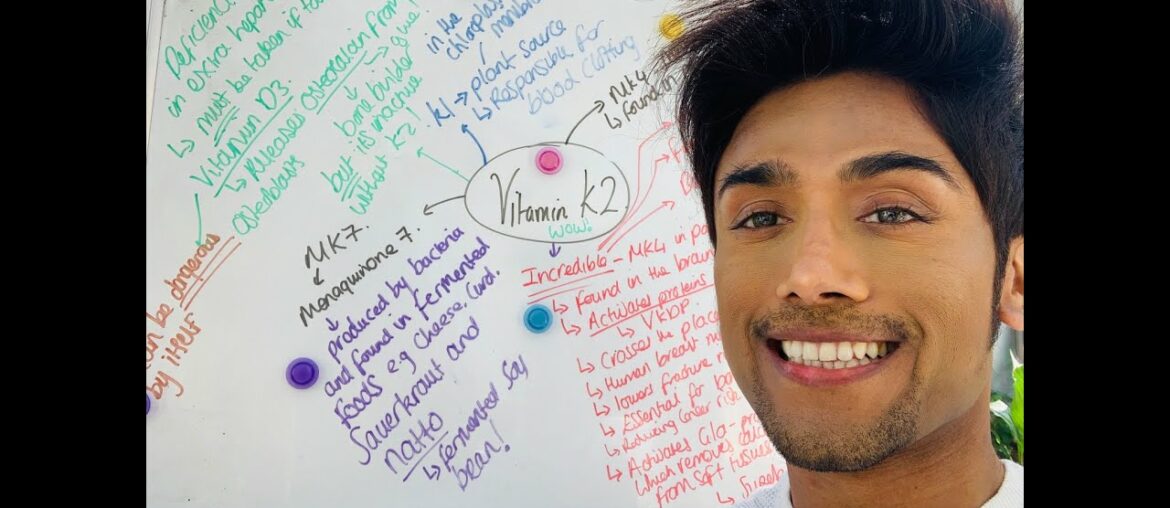 Deficienc
in extra import
must be taken if ta
Vitamin D3.
Releases Osteocalcin from
Osteoblasts
bone binder → glue!
but it is inactive
without K2!
can be dangerous
by itself
in the
chloroplast
membrane
K1 → plant source
Responsible for
blood clotting
MK4
found in
Vitamin K2
WOW!
MK7.
Menaquinone 7.
produced by bacteria
and found in fermented
foods e.g cheese, curd,
Sauerkraut and
natto
fermented soy
bean!
Incredible - MK4 in pa
Found in the brain
Activates proteins
VKDP
Crosses the place
Human breast mi
lowers fracture r
Essential for
Reducing Cancer risk
Activates Gla-pro
which removes calc
from soft tissues